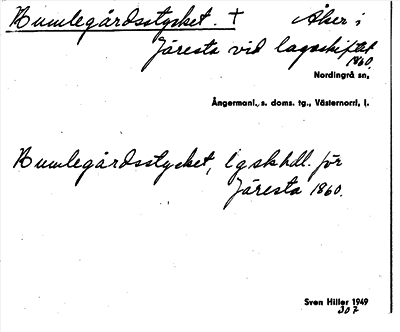 Humlegårdsstycket. † Åker i
Järesta vid lagaskiftet
1860.
Nordingrå sn,
Ångermanl., s. doms. tg., Västernorrl, l.
Humlegårdsstycket, lgskhdl. för
Järesta 1860.
Sven Hiller 1949
307